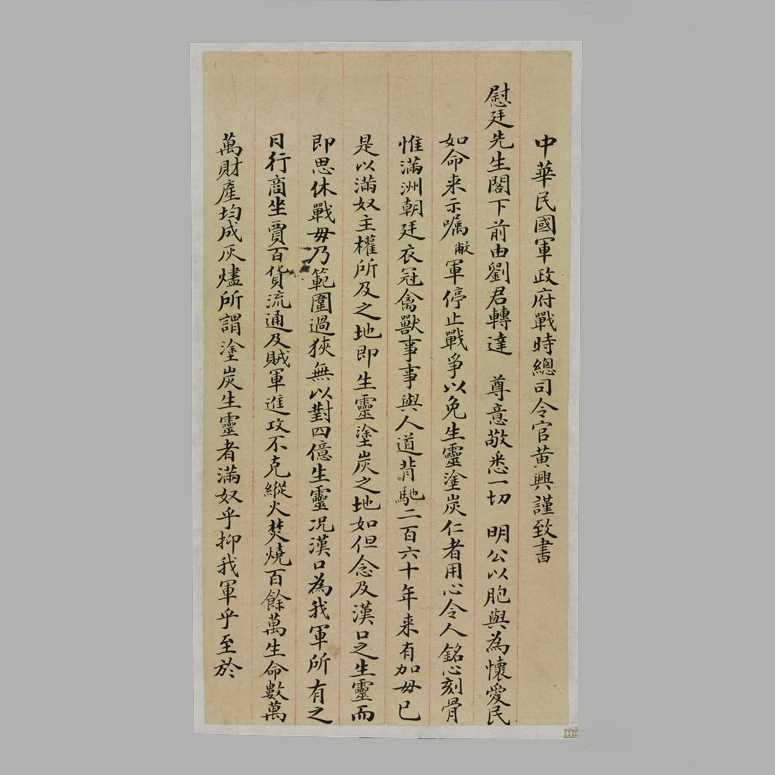 中華民國軍政府戰時總司令官黃興謹致書
慰廷先生閣下前由劉君轉達 尊意敬悉一切 明公以胞與為懷愛民
如命来示嘱敝軍停止戰爭以免生靈塗炭仁者用心令人銘心刻骨
惟滿洲朝廷衣冠禽獸事事與人道背馳二百六十年来有加毋已
是以滿奴主權所及之地即生靈塗炭之地如但念及漢口之生靈而
即思休戰毋乃範圍過狹無以對四億生靈况漢口為我軍所有之
日行商坐賈百貨流通及賊軍進攻不克縱火焚燒百餘萬生命數萬
萬財產均成灰燼所謂塗炭生靈者滿奴乎抑我軍乎至於